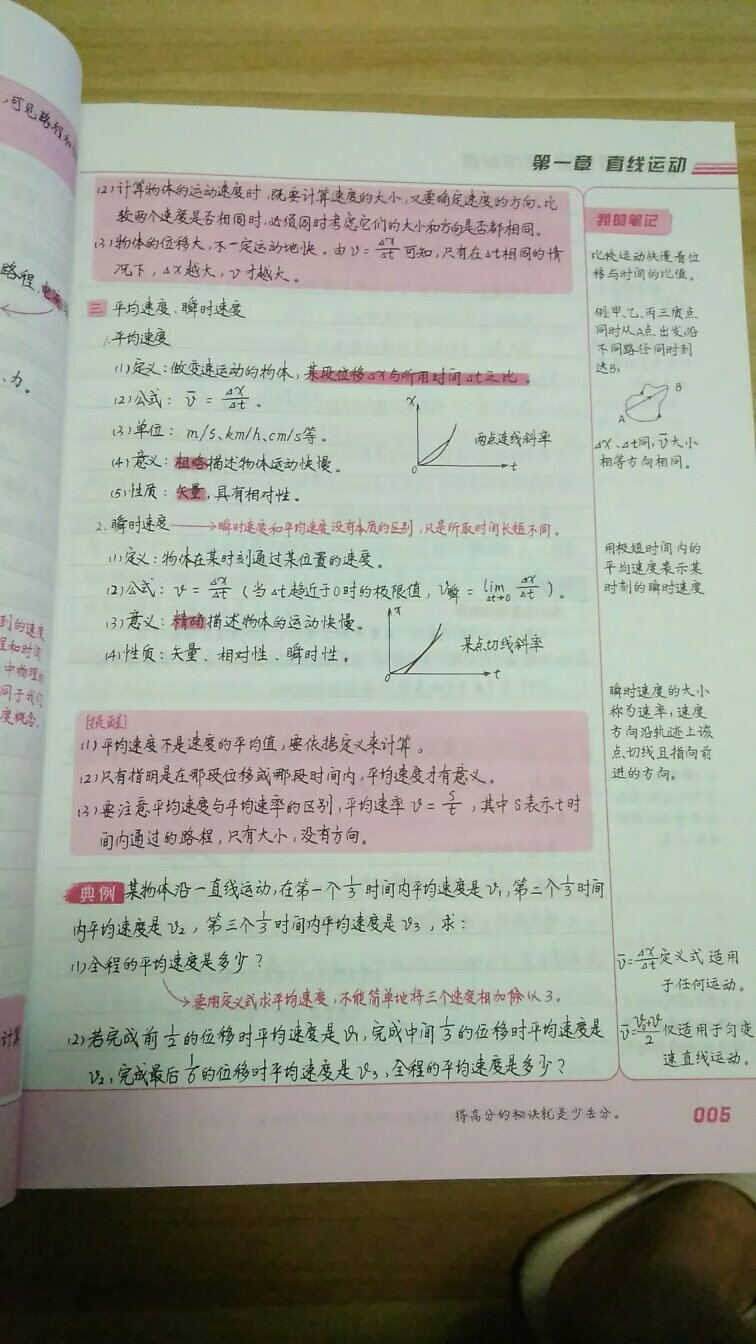 ,可见路程和
路程、电流
、力。
到的速度
程和时间
中物理的
同于我们
度概念,
计算
第一章 直线运动
(2)计算物体的运动速度时,既要计算速度的大小,又要确定速度的方向。比
较两个速度是否相同时,必须同时考虑它们的大小和方向是否都相同。
(3)物体的位移大,不一定运动地快。由v=Δx/Δt可知,只有在Δt相同的情
况下,Δx越大,v才越大。
三 平均速度、瞬时速度
1.平均速度
(1)定义:做变速运动的物体,某段位移Δx与所用时间Δt之比。
(2)公式:v̄=Δx/Δt。
(3)单位:m/s、km/h、cm/s等。
(4)意义:粗略描述物体运动快慢。
(5)性质:矢量,具有相对性。
x
0
t
两点连线斜率
2.瞬时速度→瞬时速度和平均速度没有本质的区别,只是所取时间长短不同。
(1)定义:物体在某时刻通过某位置的速度。
(2)公式:v=Δx/Δt(当Δt趋近于0时的极限值,v瞬=lim Δt→0 Δx/Δt)。
(3)意义:精确描述物体的运动快慢。
(4)性质:矢量、相对性、瞬时性。
x
0
t
某点切线斜率
[提醒]
(1)平均速度不是速度的平均值,要依据定义来计算。
(2)只有指明是在哪段位移或哪段时间内,平均速度才有意义。
(3)要注意平均速度与平均速率的区别,平均速率v=s/t,其中s表示t时
间内通过的路程,只有大小,没有方向。
典例 某物体沿一直线运动,在第一个1/3时间内平均速度是v₁,第二个1/3时间
内平均速度是v₂,第三个1/3时间内平均速度是v₃,求:
(1)全程的平均速度是多少?
要用定义式求平均速度,不能简单地将三个速度相加除以3。
(2)若完成前1/2的位移时平均速度是v₁,完成中间1/3的位移时平均速度是
v₂,完成最后1/6的位移时平均速度是v₃,全程的平均速度是多少?
我的笔记
比较运动快慢看位
移与时间的比值。
例:甲、乙、丙三质点
同时从A点出发,沿
不同路径同时到
达B,
A
B
Δx、Δt同,v̄大小
相等方向相同。
用极短时间内的
平均速度表示某
时刻的瞬时速度
瞬时速度的大小
称为速率,速度
方向沿轨迹上该
点切线且指向前
进的方向。
v̄=Δx/Δt定义式 适用
于任何运动。
v̄=(v₀+v)/2仅适用于匀变
速直线运动。
得高分的秘诀就是少丢分。
005